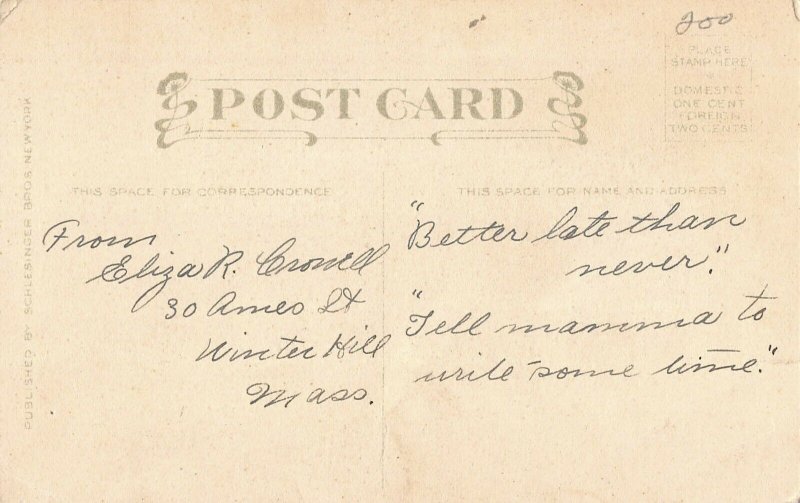 200
PLACE
STAMP HERE
DOMESTIC
ONE CENT
FOREIGN
TWO CENTS
POST CARD
THIS SPACE FOR CORRESPONDENCE
THIS SPACE FOR NAME AND ADDRESS
From
Eliza R. Crowell
30 Ames St
Winter Hill
Mass.
"Better late than
never."
"Tell mamma to
write some time."
PUBLISHED BY SCHLESINGER BROS. NEW YORK